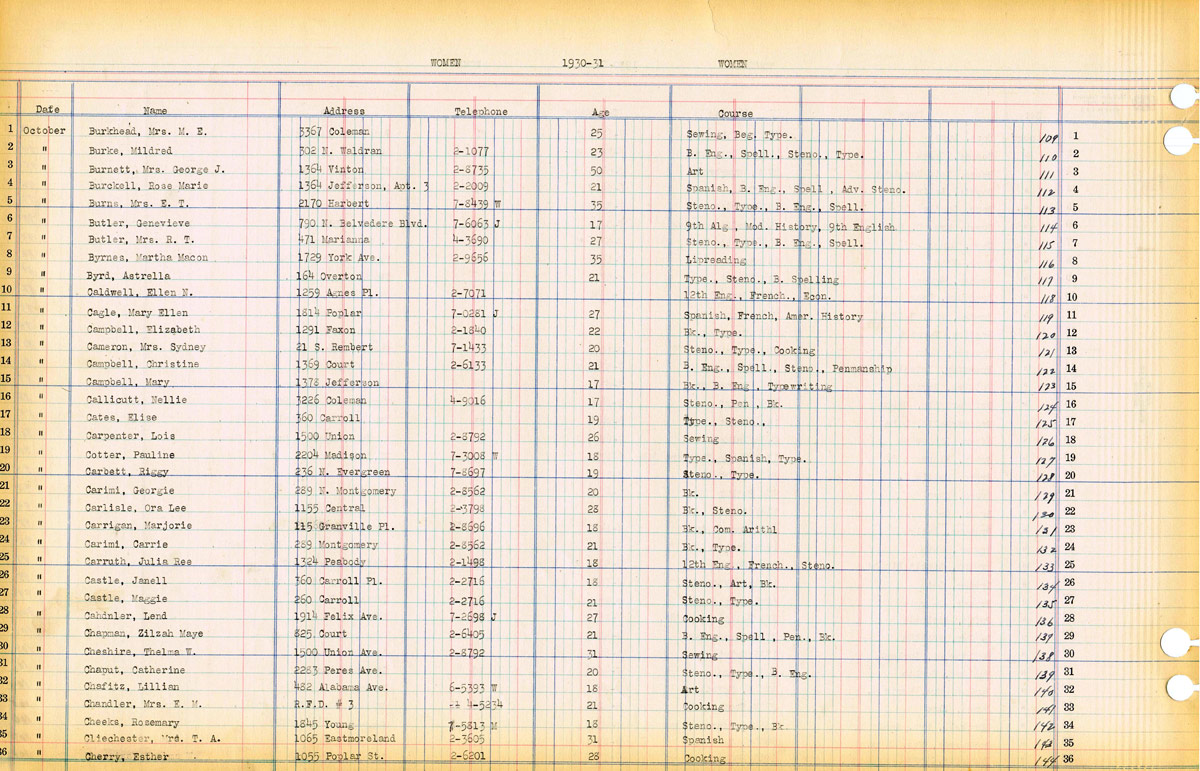 WOMEN 1930-31 WOMEN
Date Name Address Telephone Age Course
1 October Burkhead, Mrs. M. E. 3367 Coleman 25 Sewing, Beg. Type. 109 1
2 " Burke, Mildred 302 N. Waldran 2-1077 23 B. Eng., Spell., Steno., Type. 110 2
3 " Burnett, Mrs. George J. 1364 Vinton 2-8735 50 Art 111 3
4 " Burckell, Rose Marie 1364 Jefferson, Apt. 3 2-2009 21 Spanish, B. Eng., Spell , Adv. Steno. 112 4
5 " Burns, Mrs. E. T. 2170 Harbert 7-8439 W 35 Steno., Type., B. Eng., Spell. 113 5
6 " Butler, Genevieve 790 N. Belvedere Blvd. 7-6063 J 17 9th Alg., Mod. History, 9th English 114 6
7 " Butler, Mrs. R. T. 471 Marianna 4-3690 27 Steno., Type., B. Eng., Spell. 115 7
8 " Byrnes, Martha Macon 1729 York Ave. 2-9656 35 Lipreading 116 8
9 " Byrd, Astrella 164 Overton 21 Type., Steno., B. Spelling 117 9
10 " Caldwell, Ellen N. 1259 Agnes Pl. 2-7071 12th Eng., French., Econ. 118 10
11 " Cagle, Mary Ellen 1814 Poplar 7-0281 J 27 Spanish, French, Amer. History 119 11
12 " Campbell, Elizabeth 1291 Faxon 2-1840 22 Bk., Type. 120 12
13 " Cameron, Mrs. Sydney 21 S. Rembert 7-1433 20 Steno., Type., Cooking 121 13
14 " Campbell, Christine 1369 Court 2-6133 21 B. Eng., Spell., Steno., Penmanship 122 14
15 " Campbell, Mary 1378 Jefferson 17 Bk., B. Eng , Typewriting 123 15
16 " Callicutt, Nellie 3226 Coleman 4-9016 17 Steno., Pen , Bk. 124 16
17 " Cates, Elise 360 Carroll 19 Type., Steno., 125 17
18 " Carpenter, Lois 1500 Union 2-8792 26 Sewing 126 18
19 " Cotter, Pauline 2204 Madison 7-3008 W 18 Type., Spanish, Type. 127 19
20 " Carbett, Riggy 236 N. Evergreen 7-8697 19 Steno., Type. 128 20
21 " Carimi, Georgie 289 N. Montgomery 2-8562 20 Bk. 129 21
22 " Carlisle, Ora Lee 1155 Central 2-3798 28 Bk., Steno. 130 22
23 " Carrigan, Marjorie 115 Granville Pl. 2-8696 18 Bk., Com. Arithl 131 23
24 " Carimi, Carrie 289 Montgomery 2-8562 21 Bk., Type. 132 24
25 " Carruth, Julia Ree 1324 Peabody 2-1498 18 12th Eng , French., Steno. 133 25
26 " Castle, Janell 360 Carroll Pl. 2-2716 18 Steno., Art, Bk. 134 26
27 " Castle, Maggie 260 Carroll 2-2716 21 Steno., Type. 135 27
28 " Cahdnler, Lend 1914 Felix Ave. 7-2698 J 27 Cooking 136 28
29 " Chapman, Zilzah Maye 825 Court 2-6405 21 B. Eng., Spell , Pen., Bk. 137 29
30 " Cheshire, Thelma W. 1500 Union Ave. 2-8792 31 Sewing 138 30
31 " Chaput, Catherine 2283 Peres Ave. 20 Steno., Type., B. Eng. 139 31
32 " Chafitz, Lillian 482 Alabama Ave. 6-5393 W 18 Art 140 32
33 " Chandler, Mrs. E. M. R.F.D. # 3 4-5234 21 Cooking 141 33
34 " Cheeks, Rosemary 1845 Young 7-5813 M 18 Steno., Type., Bk 142 34
35 " Cliechester, Mrs. T. A. 1065 Eastmoreland 2-3605 31 Spanish 143 35
36 " Cherry, Esther 1055 Poplar St. 2-6201 28 Cooking 144 36